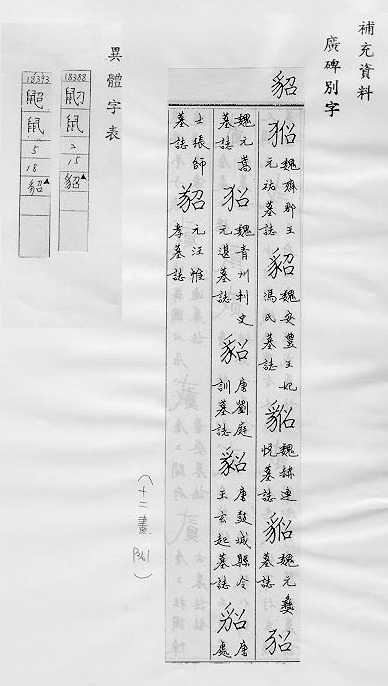 補充資料
廣碑別字
貂
魏齊郡王元祐墓誌 貂 魏安豐王妃馮氏墓誌 貂 魏赫連悅墓誌 貂 魏元彝墓誌
魏元墓誌 魏青州刺史元湛墓誌 貂 唐劉庭訓墓誌 貂 唐鼓城縣令王玄起墓誌 貂 唐處
士張師墓誌 元汪惟孝墓誌
(十二畫 1361)
異體字表
18388 鼠 2 15 貂▲
18393 鼠 5 18 貂▲